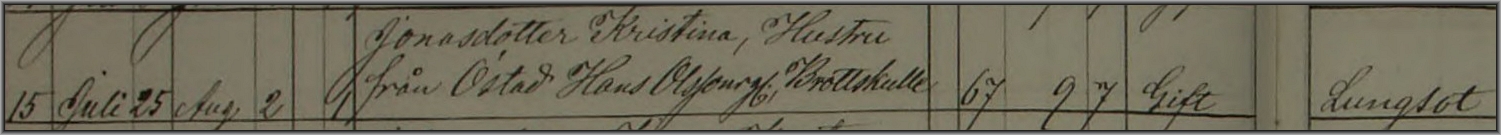 Jonasdotter Kristina, Hustru
15 Juli 25 Aug 2 1 från Östad Hans Olssons Brattskulle 67 9 7 Gift Lungsot